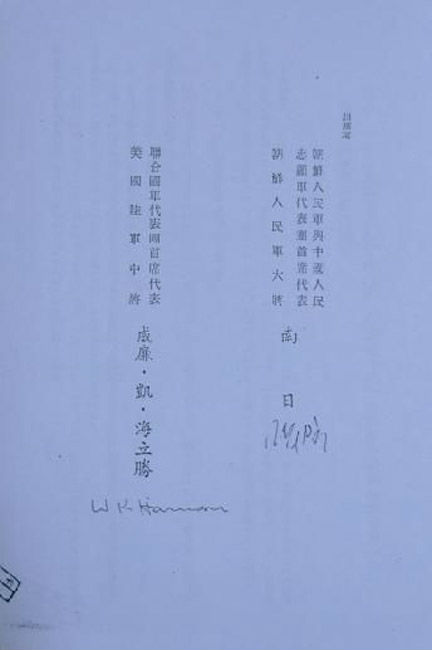 朝鮮人民軍與中國人民
志願軍代表團首席代表
朝鮮人民軍大將
南日
聯合國軍代表團首席代表
美國陸軍中將
威廉·凱·海立勝
W K Harrison